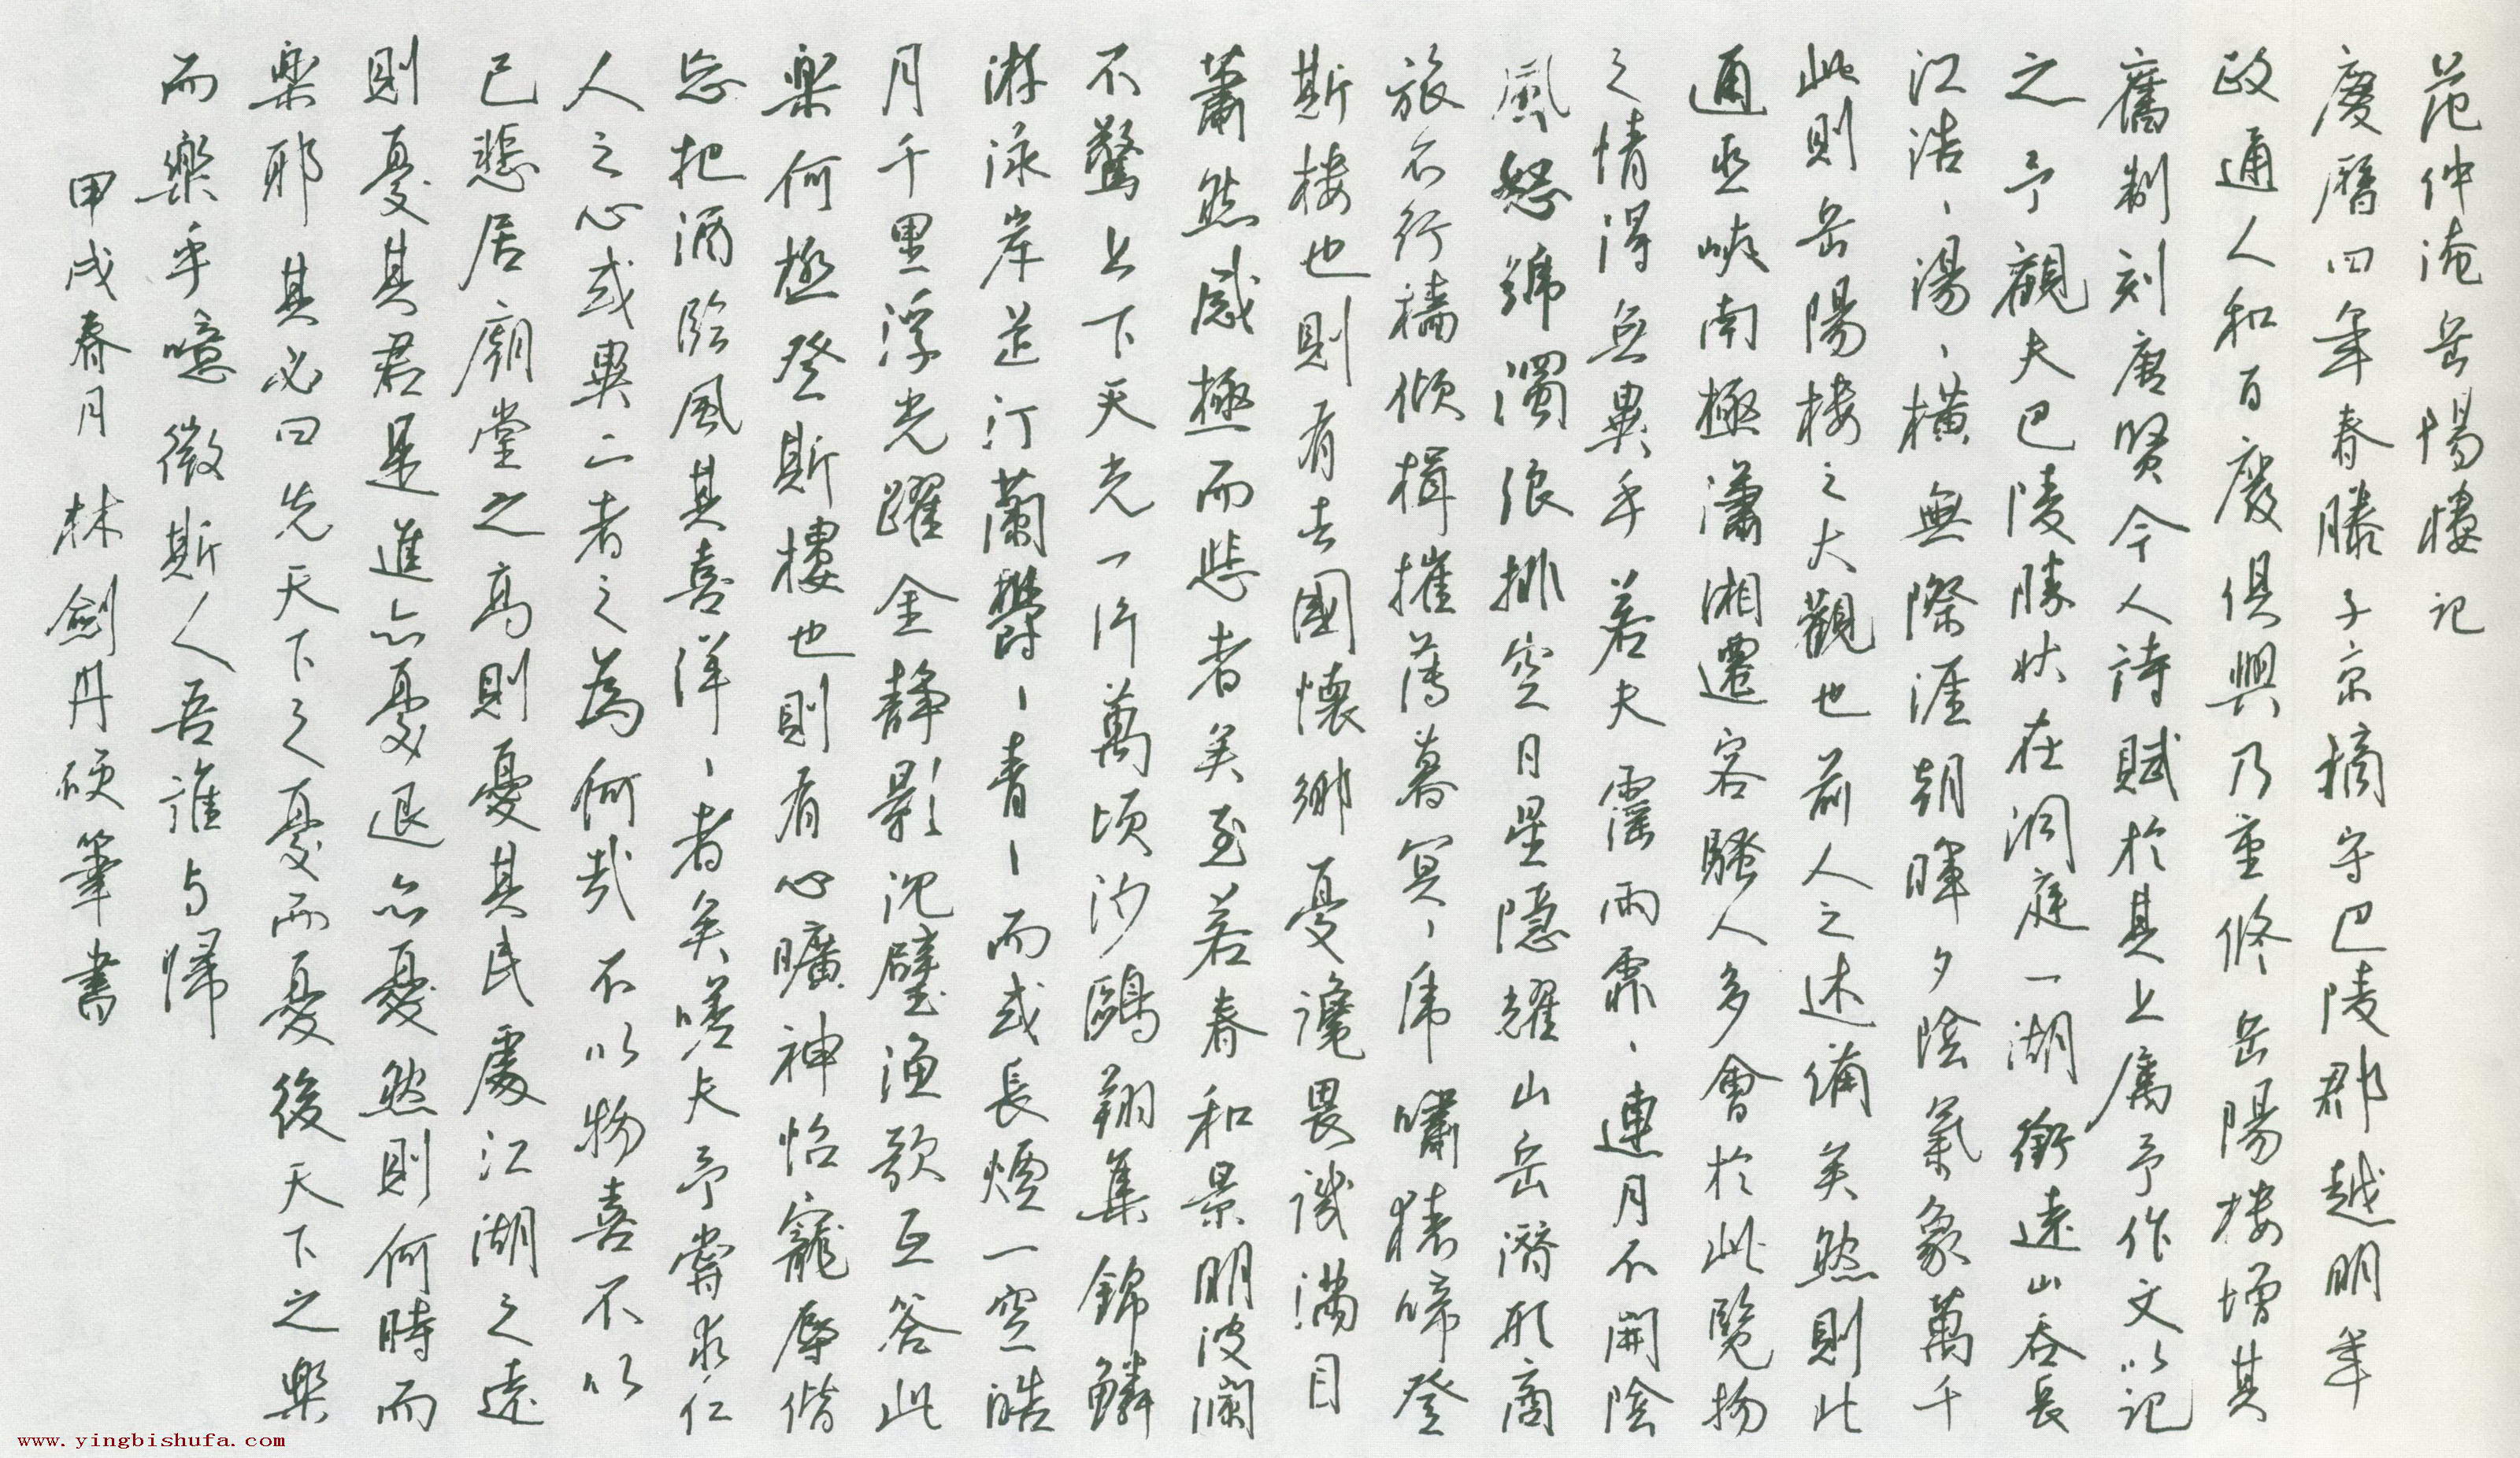 范仲淹岳陽樓記
慶曆四年春滕子京摘守巴陵郡越明年
政通人和百廢俱興乃重修岳陽楼增其
舊制刻唐賢今人詩賦於其上属予作文以记
之予觀夫巴陵勝狀在洞庭一湖銜遠山吞长
江浩、湯、横無際涯朝暉夕陰氣象萬千
此則岳陽楼之大觀也前人之述俻矣然則北
通巫峽南極瀟湘遷客騷人多會於此覽物
之情得無異乎若夫霪雨霏、連月不開陰
風怒號濁浪排空日星隱耀山岳潜形商
旅不行檣傾楫摧薄暮冥、虎嘯猿啼登
斯楼也則有去國懷鄉憂讒畏譏满目
蕭然感極而悲者矣至若春和景明波瀾
不驚上下天光一片萬頃沙鷗翔集錦鱗
游泳岸芷汀蘭鬱、青、而或長煙一空皓
月千里浮光躍金静影沉璧渔歌互答此
樂何極登斯樓也則有心曠神怡寵辱偕
忘把酒臨風其喜洋、者矣嗟夫予嘗求仁
人之心或異二者之為何哉不以物喜不以
己悲居廟堂之高則憂其民處江湖之遠
則憂其君是進亦憂退亦憂然則何時而
樂耶其必曰先天下之憂而憂後天下之樂
而樂乎噫微斯人吾誰与歸
甲戌春月林劍丹硬筆書
www.yingbishufa.com